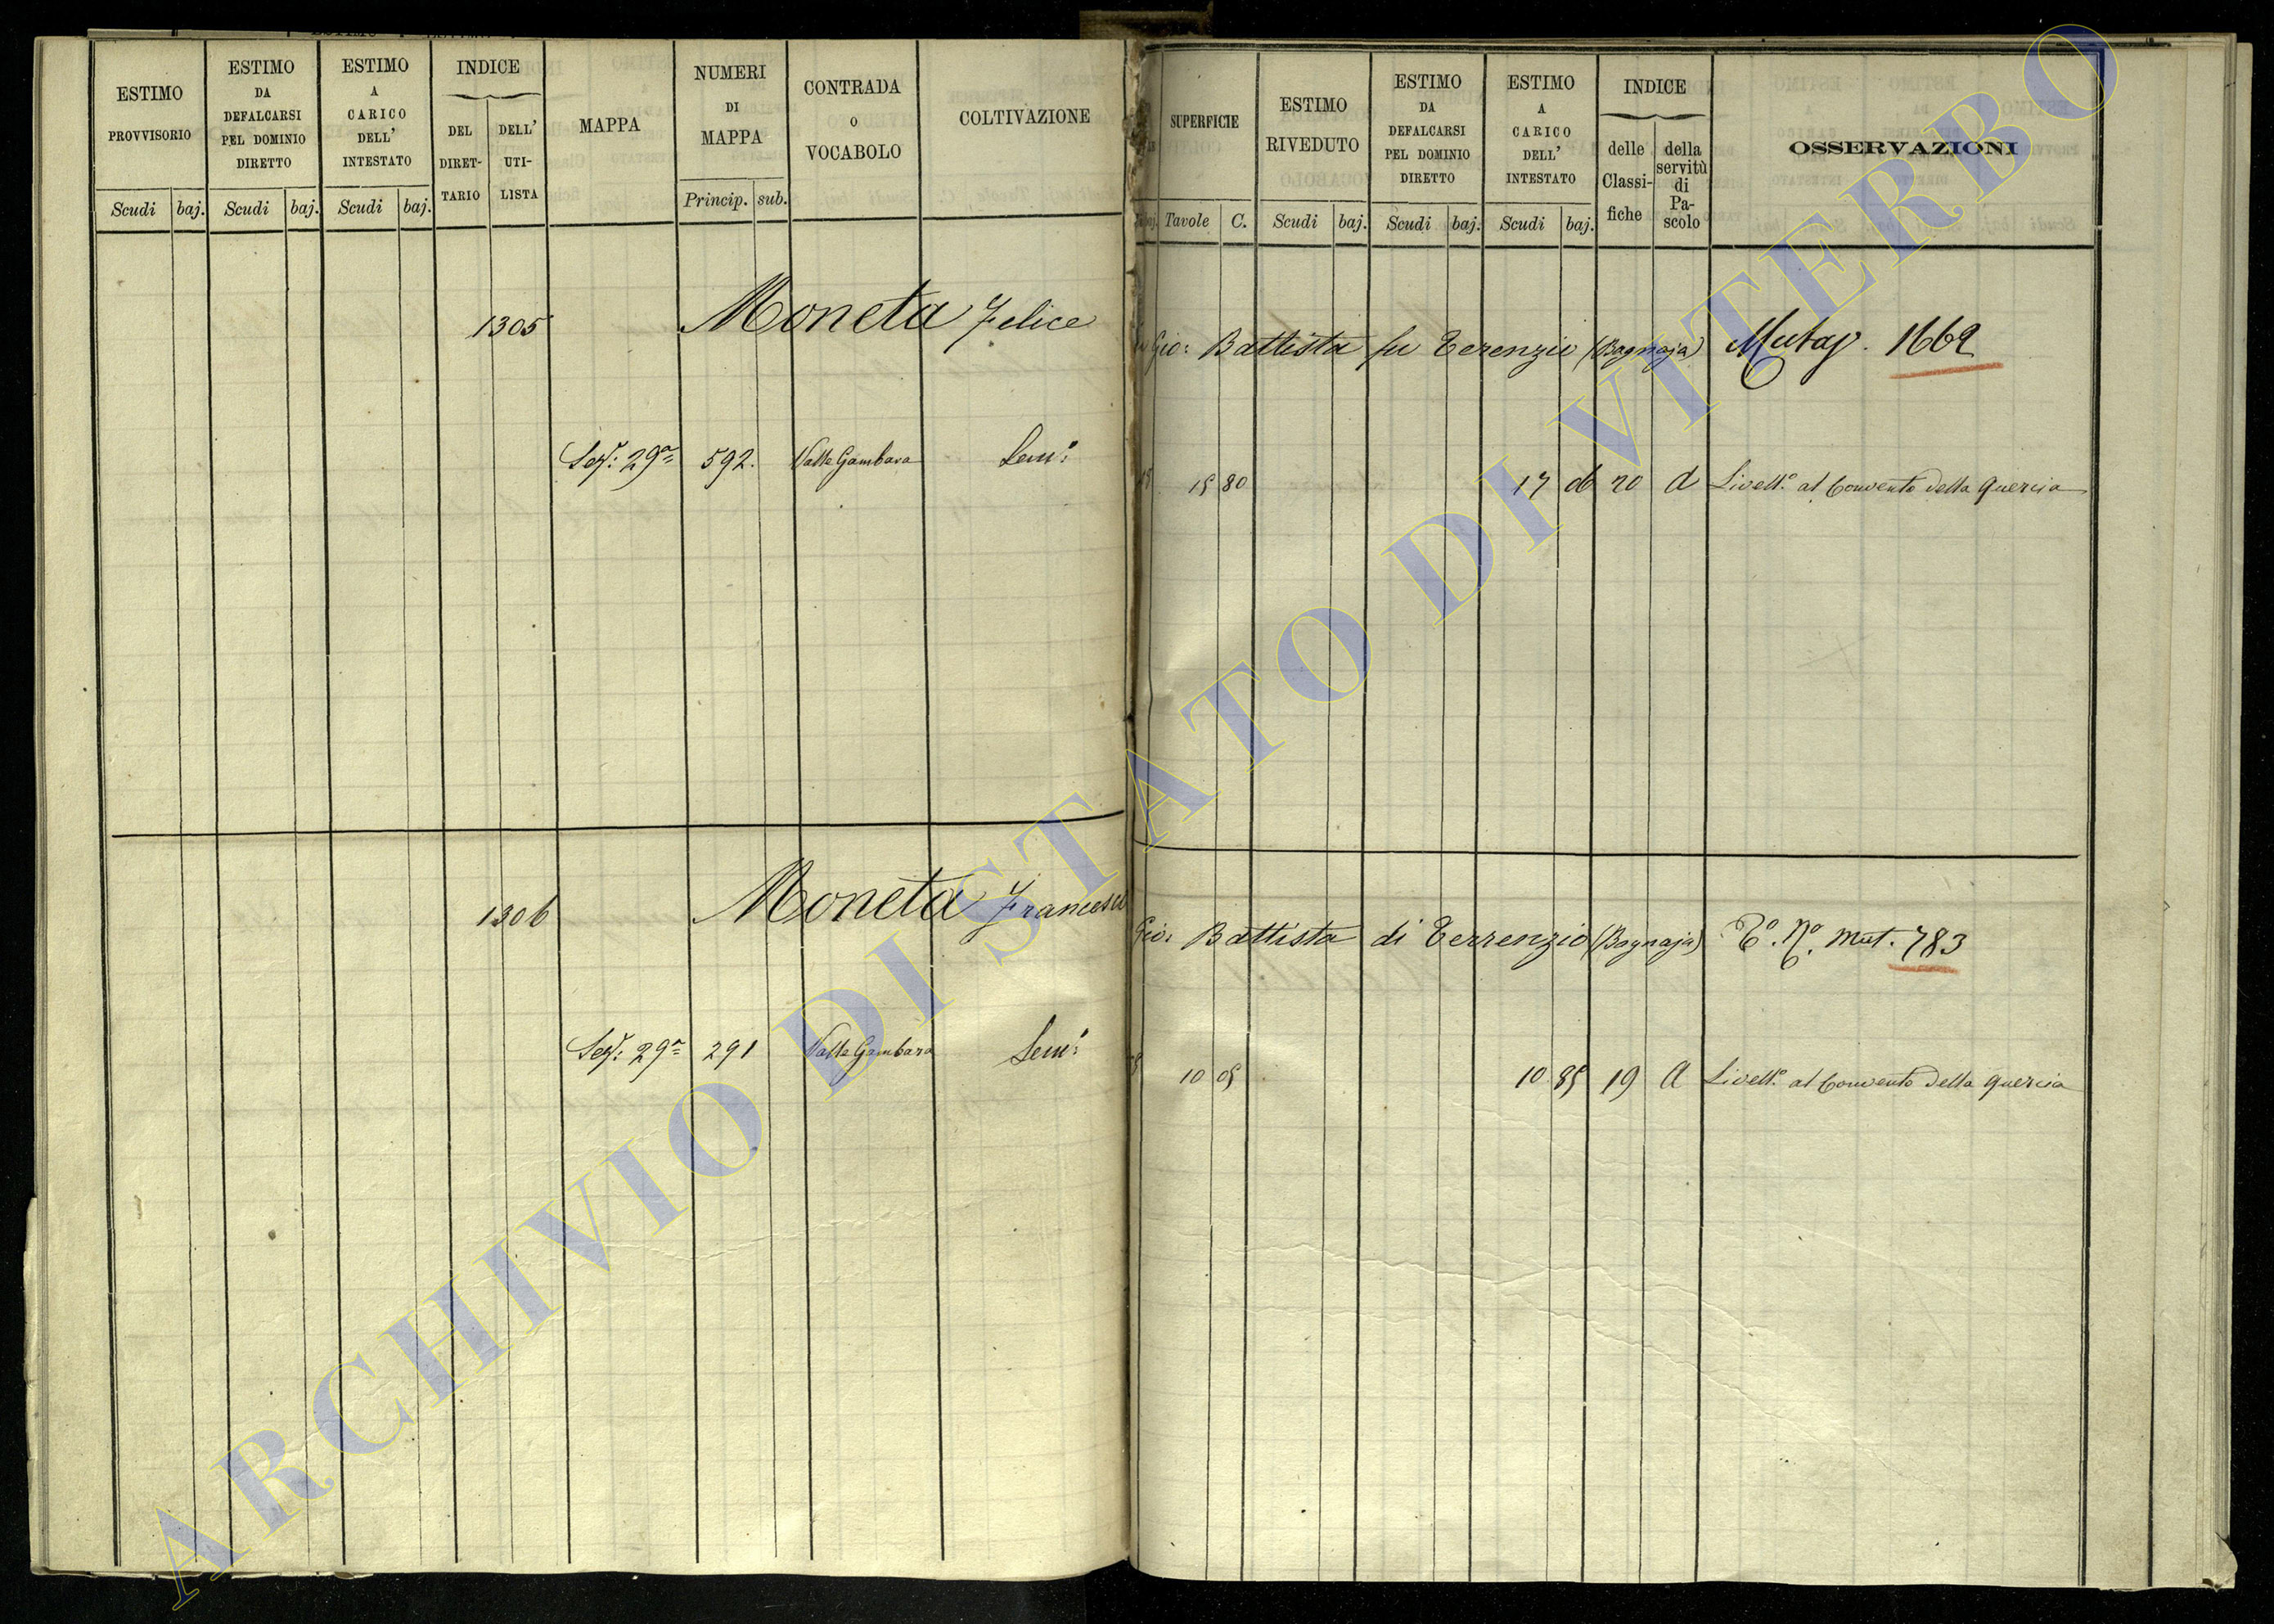 ESTIMO PROVVISORIO
Scudi baj.
ESTIMO DA DEFALCARSI PEL DOMINIO DIRETTO
Scudi baj.
ESTIMO A CARICO DELL' INTESTATO
Scudi baj.
INDICE
DEL DIRET-TARIO
DELL' UTI-LISTA
MAPPA
NUMERI DI MAPPA
Princip. sub.
CONTRADA O VOCABOLO
COLTIVAZIONE
SUPERFICIE
Tavole C.
ESTIMO RIVEDUTO
Scudi baj.
ESTIMO DA DEFALCARSI PEL DOMINIO DIRETTO
Scudi baj.
ESTIMO A CARICO DELL' INTESTATO
Scudi baj.
INDICE
delle Classi-fiche
della servitù di Pa-scolo
OSSERVAZIONI
1305 Moneta Felice
Gio: Battista fu Terenzio (Bagnaja) 1662
29a 592. Valle Gambara Sem:
15 80 17 20 a Livello al Convento della Quercia
1306 Moneta Francesco
Gio: Battista di Terrenzio (Bagnaja) To. No. Mut. 783
29a 291 Valle Gambara Sem:
10 05 10 85 19 a Livello al Convento della Quercia
ARCHIVIO DI STATO DI VITERBO